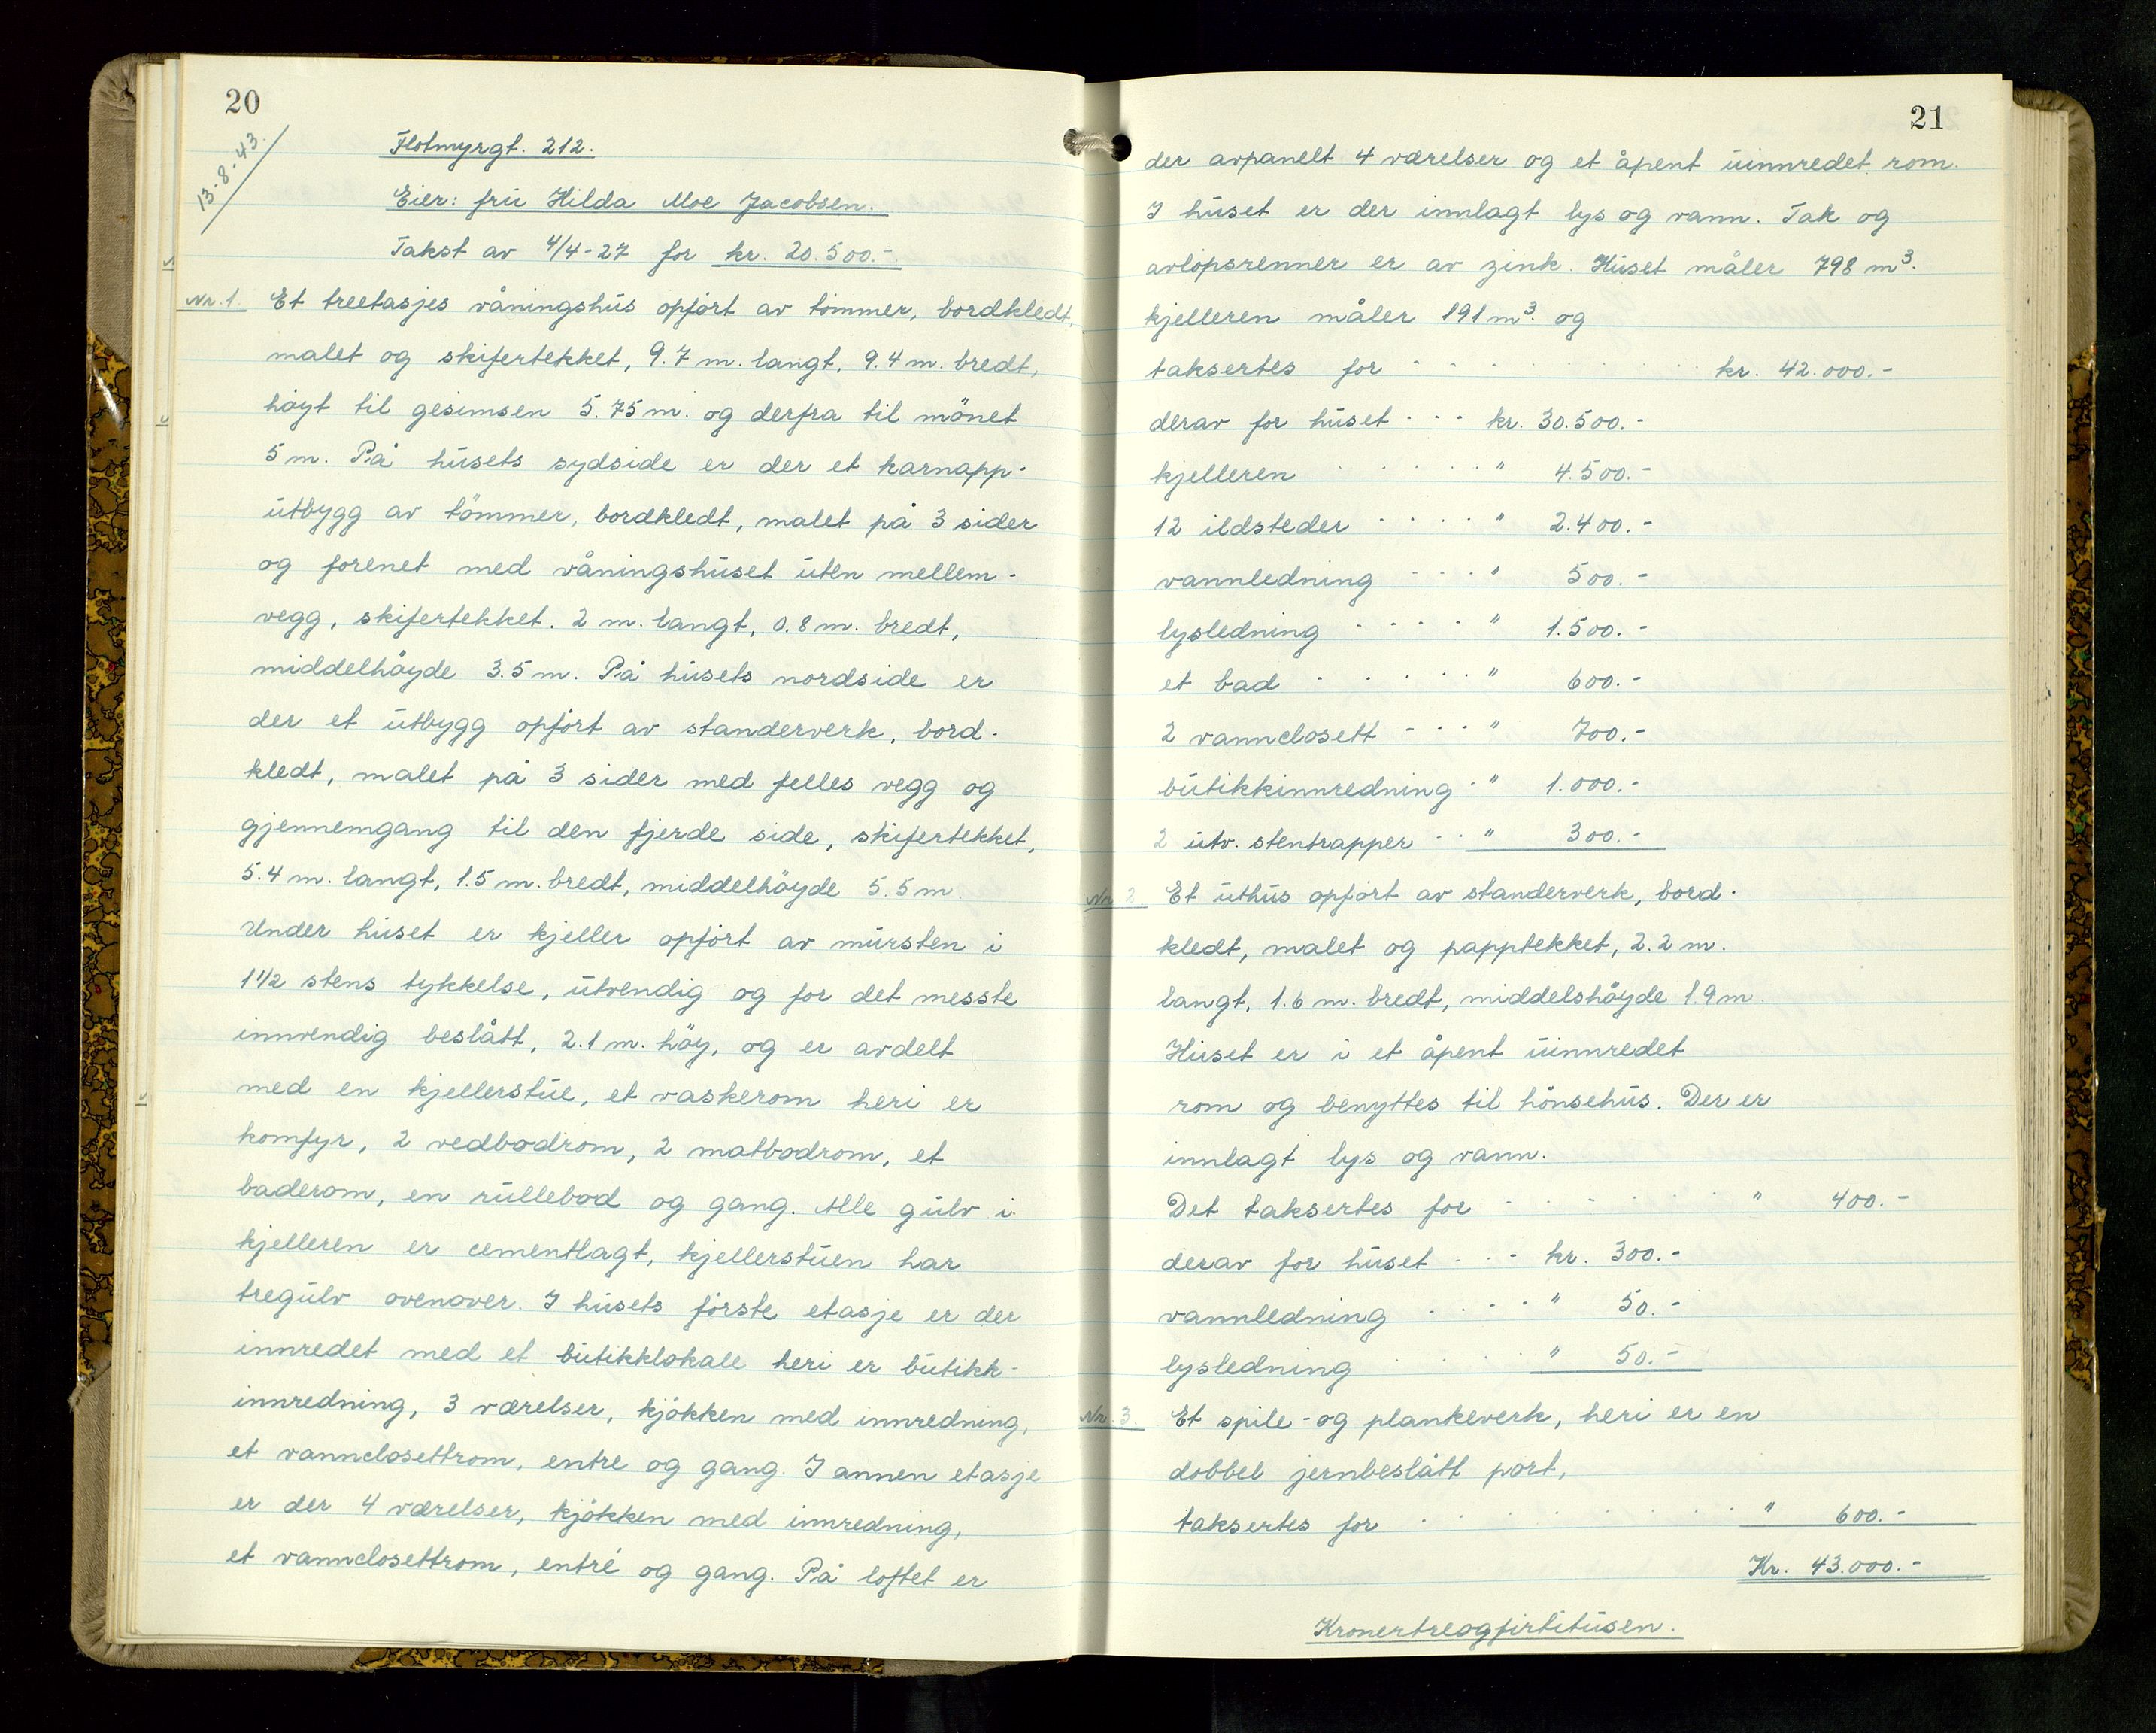 20
13-8-43.
Flotmyrgt. 212.
Eier: frú Hilda Moe Jacobsen.
Takst av 4/4-27 for kr. 20.500.-
Nr. 1. Et treetasjes våningshús opført av tömmer, bordkledt,
malet og skifertekket, 9.7 m. langt, 9.4 m. bredt,
höyt til gesimsen 5.75 m. og derfra til mönet
5 m. På húsets sydside er der et karnapp-
útbygg av tömmer, bordkledt, malet på 3 sider
og forenet med våningshúset úten mellem-
vegg, skifertekket. 2 m. langt, 0.8 m. bredt,
middelhöyde 3.5 m. På húsets nordside er
der et útbygg opfört av standerverk, bord-
kledt, malet på 3 sider med felles vegg og
gjennemgang til den fjerde side, skifertekket,
5.4 m. langt, 1.5 m. bredt, middelhöyde 5.5 m.
Under húset er kjeller opfört av múrsten i
1 1/2 stens tykkelse, útvendig og for det messte
innvendig beslått, 2.1 m. höy, og er avdelt
med en kjellerstúe, et vaskerom heri er
komfyr, 2 vedbodrom, 2 matbodrom, et
baderom, en rúllebod og gang. Alle gúlv i
kjelleren er cementlagt, kjellerstúen har
tregúlv ovenover. I húsets förste etasje er der
innredet med et bútikklokale heri er bútikk-
innredning, 3 værelser, kjökken med innredning,
et vannclosettrom, entre og gang. I annen etasje
er der 4 værelser, kjökken med innredning,
et vannclosettrom, entré og gang. På loftet er
21
der avpanelt 4 værelser og et åpent úinnredet rom.
I húset er der innlagt lys og vann. Tak og
avlöpsrenner er av zink. Húset måler 798 m³.
kjelleren måler 191 m³. og
taksertes for kr. 42.000.-
derav for húset kr. 30.500.-
kjelleren " 4.500.-
12 ildsteder " 2.400.-
vannledning " 500.-
lysledning " 1.500.-
et bad " 600.-
2 vannclosett " 700.-
bútikkinnredning " 1.000.-
2 útv. stentrapper " 300.-
Nr. 2. Et úthús opfört av standerverk, bord-
kledt, malet og papptekket, 2.2 m.
langt, 1.6 m. bredt, middelshöyde 1.9 m.
Húset er i et åpent úinnredet
rom og benyttes til hönsehús. Der er
innlagt lys og vann.
Det taksertes for " 400.-
derav for húset kr. 300.-
vannledning " 50.-
lysledning " 50.-
Nr. 3. Et spile- og plankeverk, heri er en
dobbel jernbeslått port,
taksertes for " 600.-
Kr. 43.000.-
Kronertreogfirtitúsen.